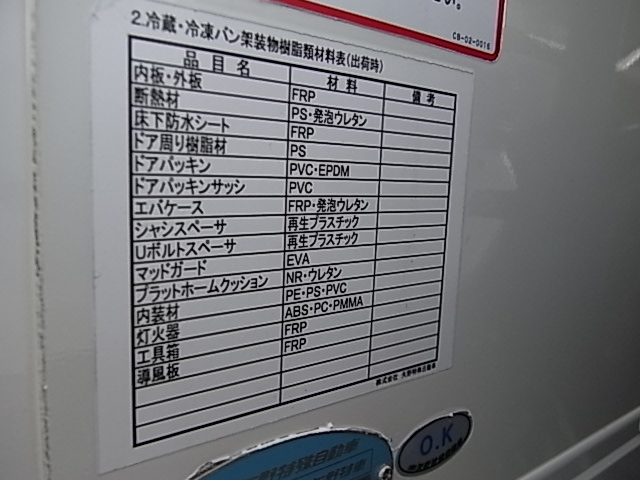 い。
CB-02-0016
2.冷蔵・冷凍バン架装物樹脂類材料表(出荷時)
品目名 材料 備考
内板・外板 FRP
断熱材 PS・発泡ウレタン
床下防水シート FRP
ドア周り樹脂材 PS
ドアパッキン PVC・EPDM
ドアパッキンサッシ PVC
エバケース FRP・発泡ウレタン
シャシスペーサ 再生プラスチック
Uボルトスペーサ 再生プラスチック
マッドガード EVA
プラットホームクッション NR・ウレタン
内装材 PE・PS・PVC
灯火器 ABS・PC・PMMA
工具箱 FRP
導風板 FRP
株式会社 矢野特殊自動車
矢野特殊自動車
O.K